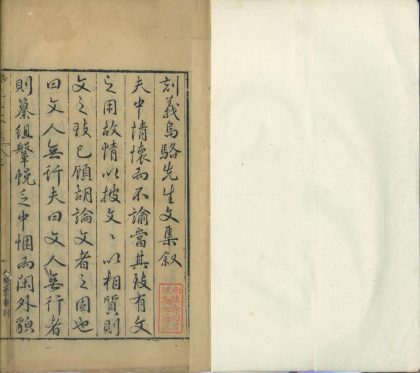 刻義烏駱先生文集叙
夫中情懷而不諭當其跂有文
之用故情以披文〻以相質則
文之跂已顧胡論文者之固也
曰文人無行夫曰文人無行者
則纂組鞶帨乏中悃而閑外貌